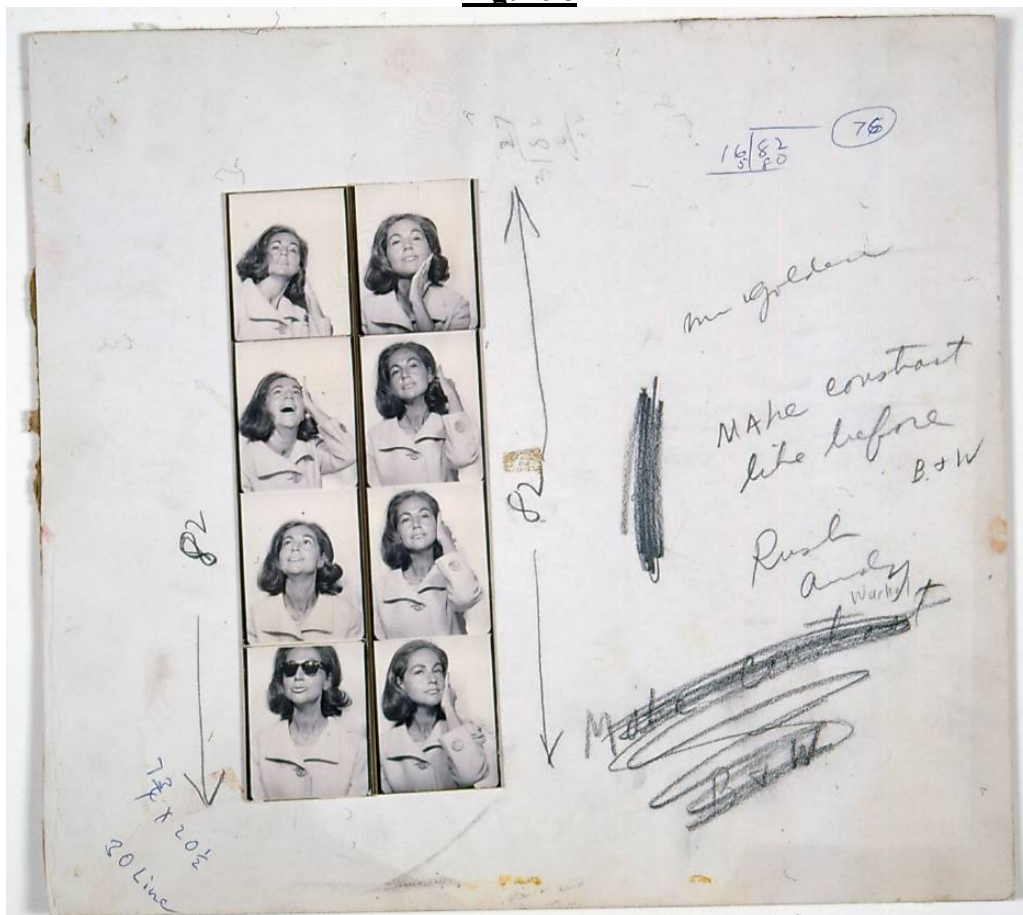 76
16 82
5 80
Mr Golden
MAke constrast
like before
B. + W
Rush
Andy
Warhol
82
82
Make Contrast
B + W
7 3/4 X 20 1/2
30 Line